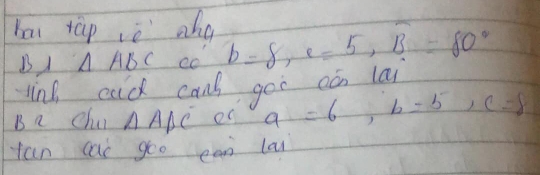 Bài tập về nhà
B1 Δ ABC có b = 8, c = 5, B̂ = 80°
tính cách cạnh góc còn lại
B2 cho ΔABC có a = 6, b = 5, c = 8
tìm các góc còn lại